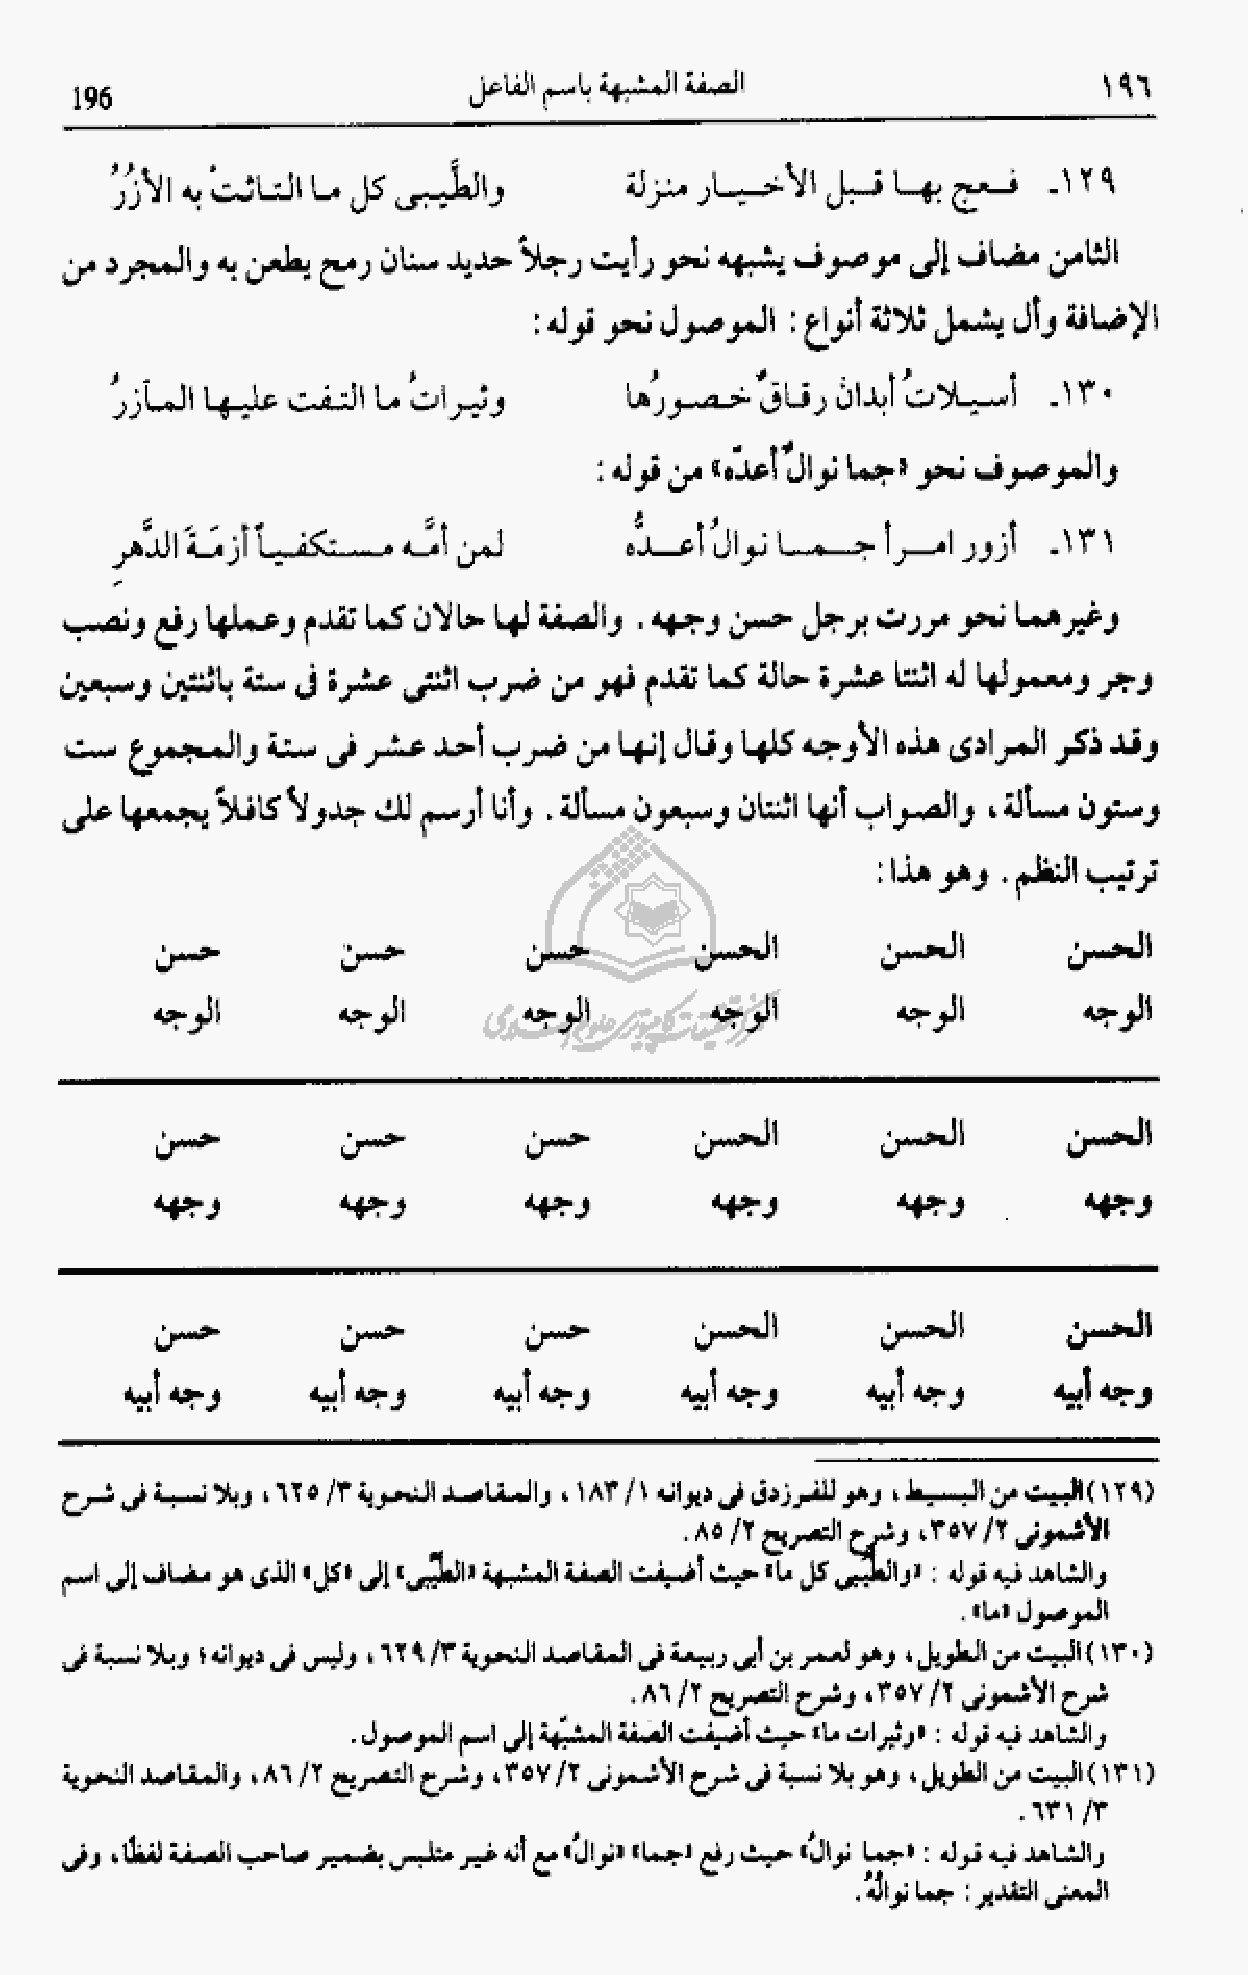 ١٩٦ الصفة المشبهة باسم الفاعل 196
١٢٩ـ فـعـج بهـا قـبل الأخـيـار منـزلة والطَّيـبى كل مـا التـاثتْ به الأزُرُ
الثامن مضاف إلى موصوف يشبهه نحو رأيت رجلاً حديد سنان رمح يطعن به والمجرد من
الإضافة وأل يشمل ثلاثة أنواع : الموصول نحو قوله :
١٣٠ـ أسـيـلاتُ أبدانٍ رقـاقٌ خـصـورُها وثيـراتُ ما التـفت عليـهـا المـآزرُ
والموصوف نحو «جما نوالٌ أعدّه» من قوله :
١٣١ـ أزور امـرأ جـمـا نوالٌ أعـدُّه لمن أمَّـه مـستـكفـيـاً أزمَـةَ الدَّهرِ
وغيرهما نحو مررت برجل حسن وجهه . والصفة لها حالان كما تقدم وعملها رفع ونصب
وجر ومعمولها له اثنتا عشرة حالة كما تقدم فهو من ضرب اثنتى عشرة فى ستة باثنتين وسبعين
وقد ذكر المرادى هذه الأوجه كلها وقال إنها من ضرب أحد عشر فى ستة والمجموع ست
وستون مسألة ، والصواب أنها اثنتان وسبعون مسألة . وأنا أرسم لك جدولاً كافلاً يجمعها على
ترتيب النظم . وهو هذا :
الحسن الحسن الحسن حسن حسن حسن
الوجه الوجه الوجه الوجه الوجه الوجه
الحسن الحسن الحسن حسن حسن حسن
وجهه وجهه وجهه وجهه وجهه وجهه
الحسن الحسن الحسن حسن حسن حسن
وجه أبيه وجه أبيه وجه أبيه وجه أبيه وجه أبيه وجه أبيه
(١٢٩) البيت من البسيط ، وهو للفرزدق فى ديوانه ١/ ١٨٣ ، والمقاصد النحوية ٣/ ٦٢٥ ، وبلا نسبة فى شرح
الأشمونى ٢/ ٣٥٧ ، وشرح التصريح ٢/ ٨٥ .
والشاهد فيه قوله : «والطَّيبى كل ما» حيث أضيفت الصفة المشبهة «الطَّيِّبى» إلى «كل» الذى هو مضاف إلى اسم
الموصول «ما» .
(١٣٠) البيت من الطويل ، وهو لعمر بن أبى ربيعة فى المقاصد النحوية ٣/ ٦٢٩ ، وليس فى ديوانه ؛ وبلا نسبة فى
شرح الأشمونى ٢/ ٣٥٧ ، وشرح التصريح ٢/ ٨٦ .
والشاهد فيه قوله : «وثيرات ما» حيث أضيفت الصفة المشبّهة إلى اسم الموصول .
(١٣١) البيت من الطويل ، وهو بلا نسبة فى شرح الأشمونى ٢/ ٣٥٧ ، وشرح التصريح ٢/ ٨٦ ، والمقاصد النحوية
٣/ ٦٣١ .
والشاهد فيه قوله : «جما نوالٌ» حيث رفع «جما» «نوالٌ» مع أنه غير متلبس بضمير صاحب الصفة لفظًا ، وفى
المعنى التقدير : جما نوالُهُ .